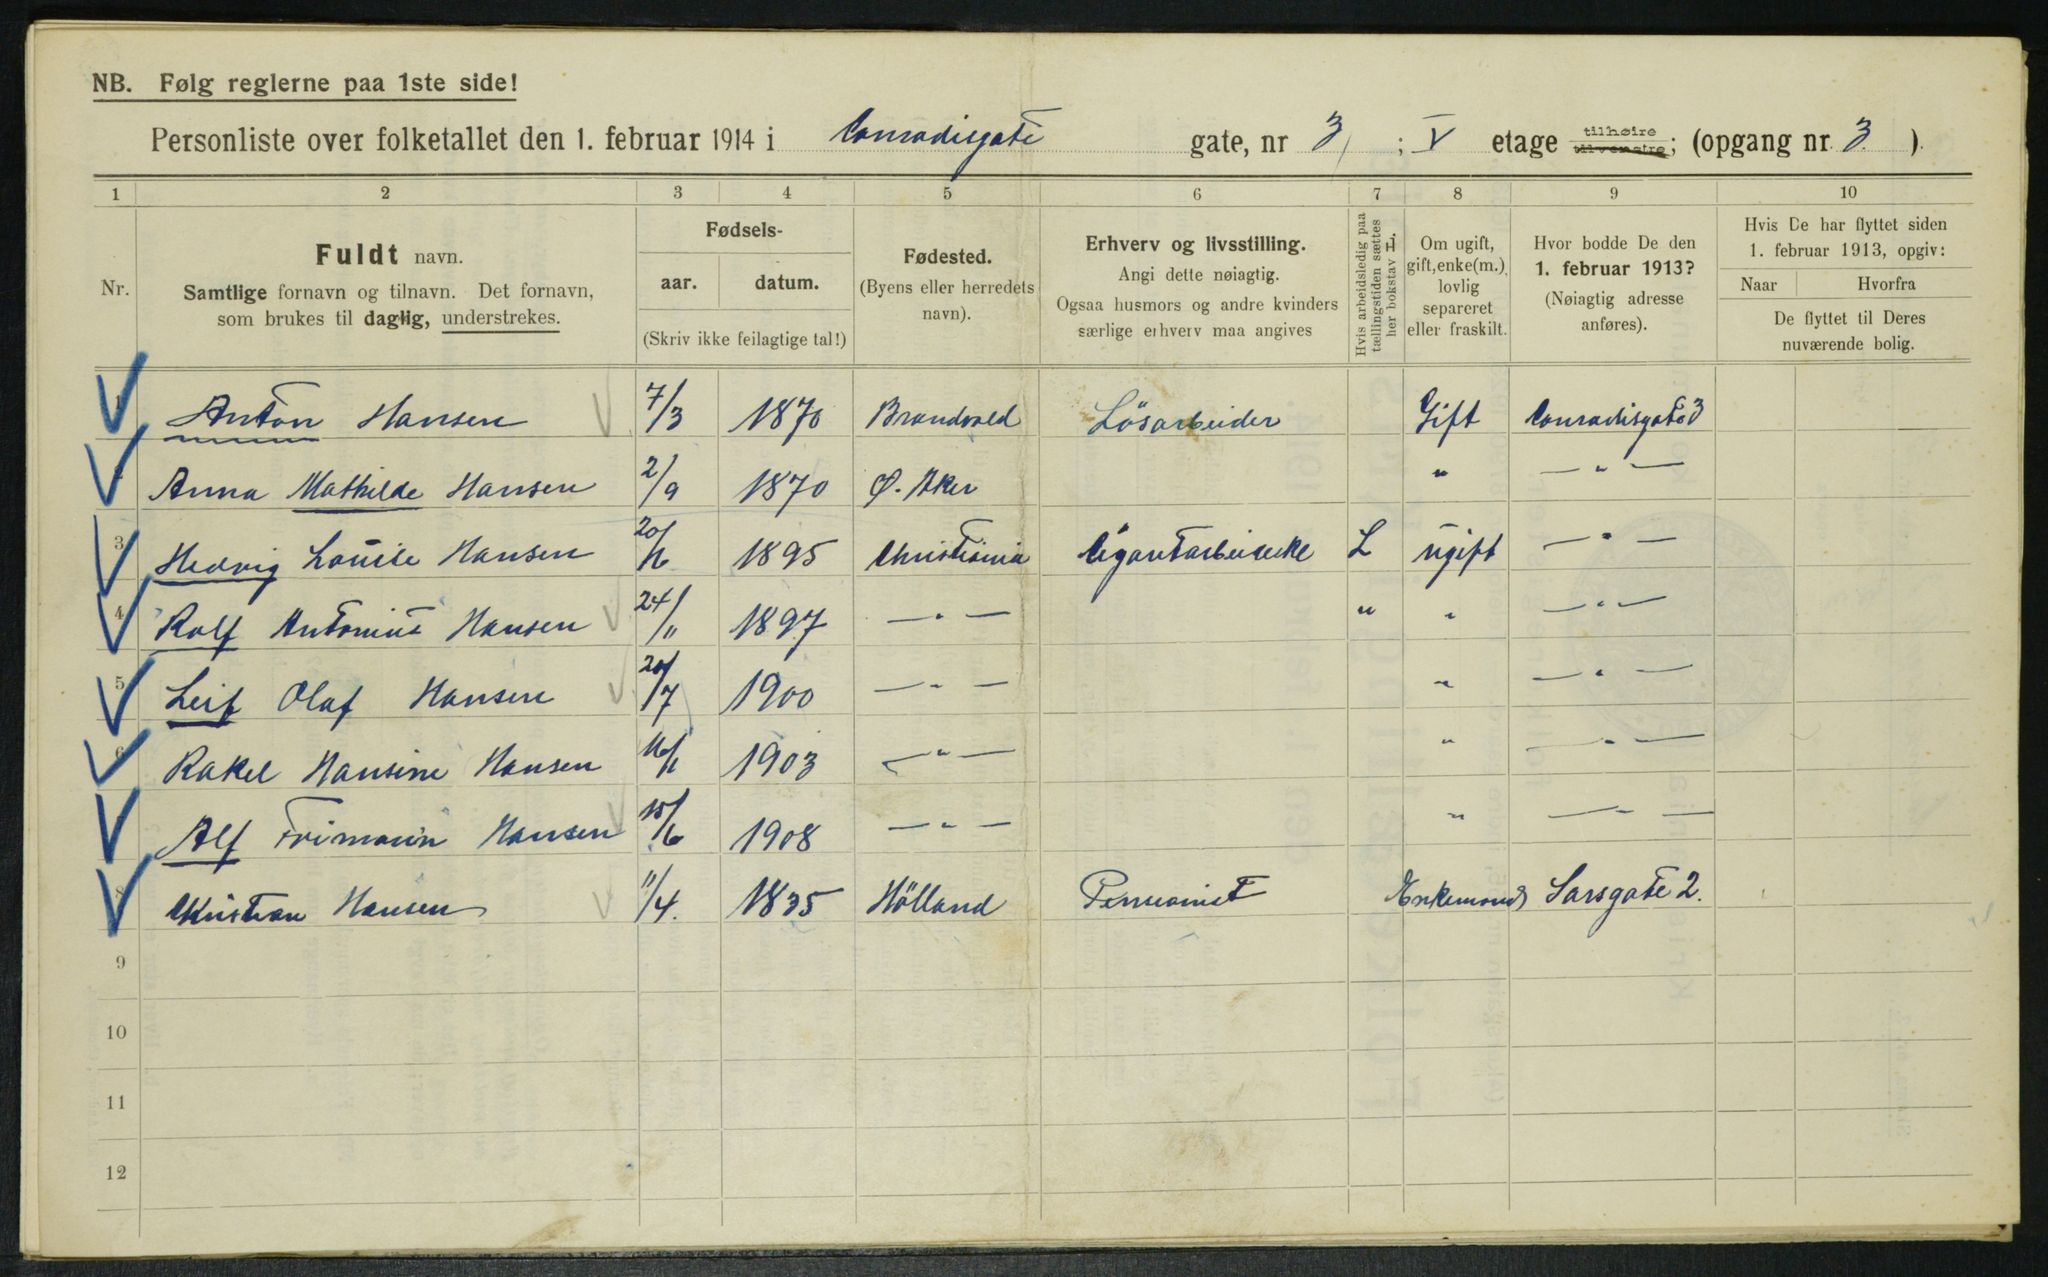 NB. Følg reglerne paa 1ste side!
Personliste over folketallet den 1. februar 1914 i Conradisgate gate, nr 3 ; V etage tilhøire tilvenstre; (opgang nr. 3 ).
1 2 3 4 5 6 7 8 9 10
Nr.
Fuldt navn.
Samtlige fornavn og tilnavn. Det fornavn,
som brukes til daglig, understrekes.
Fødsels-
aar. datum.
(Skriv ikke feilagtige tal!)
Fødested.
(Byens eller herredets
navn).
Erhverv og livsstilling.
Angi dette nøiagtig.
Ogsaa husmors og andre kvinders
særlige erhverv maa angives
Hvis arbeidsledig paa
tællingstiden sættes
her bokstav L.
Om ugift,
gift, enke(m.),
lovlig
separeret
eller fraskilt.
Hvor bodde De den
1. februar 1913?
(Nøiagtig adresse
anføres).
Hvis De har flyttet siden
1. februar 1913, opgiv:
Naar Hvorfra
De flyttet til Deres
nuværende bolig.
1 Anton Hansen 7/3 1870 Brandvold Lösarbeider Gift Conradisgate 3
2 Anna Mathilde Hansen 2/9 1870 Ø. Aker " — " —
3 Hedvig Louise Hansen 1895 Christiania L ugift — " —
4 Rolf Antonius Hansen 24/11 1897 — " — " " — " —
5 Leif Olaf Hansen 20/7 1900 — " — " — " —
6 Rakel Hansine Hansen 1903 — " — " — " —
7 Alf Frimann Hansen 1908 — " — " — " —
8 Kristian Hansen 11/4. 1835 Hölland Pensionist Enkemand Sarsgate 2.
9
10
11
12